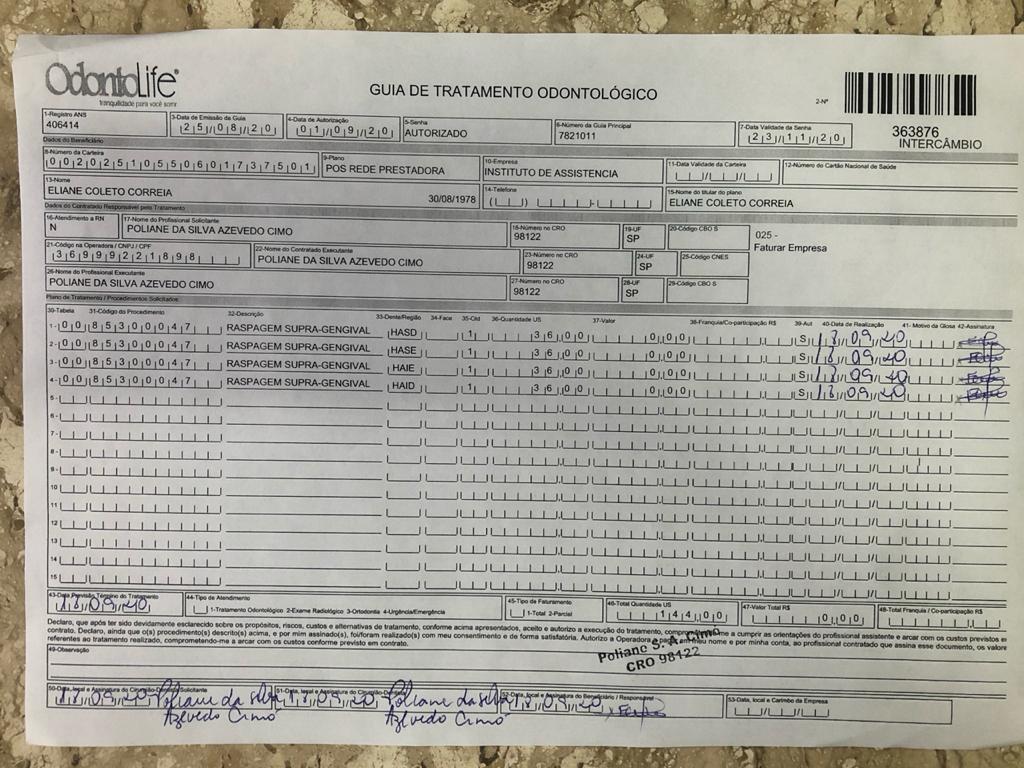 OdontoLife®
tranquilidade para você sorrir
GUIA DE TRATAMENTO ODONTOLÓGICO
2-Nº
363876
INTERCÂMBIO
1-Registro ANS
406414
3-Data de Emissão da Guia
25/08/20
4-Data de Autorização
01/09/20
5-Senha
AUTORIZADO
6-Número da Guia Principal
7821011
7-Data Validade da Senha
23/11/20
Dados do Beneficiário
8-Número da Carteira
00202510550601737501
9-Plano
POS REDE PRESTADORA
10-Empresa
INSTITUTO DE ASSISTENCIA
11-Data Validade da Carteira
12-Número do Cartão Nacional de Saúde
13-Nome
ELIANE COLETO CORREIA 30/08/1978
14-Telefone
15-Nome do titular do plano
ELIANE COLETO CORREIA
Dados do Contratado Responsável pelo Tratamento
16-Atendimento a RN
N
17-Nome do Profissional Solicitante
POLIANE DA SILVA AZEVEDO CIMO
18-Número no CRO
98122
19-UF
SP
20-Código CBO S
025 -
Faturar Empresa
21-Código na Operadora / CNPJ / CPF
36999221898
22-Nome do Contratado Executante
POLIANE DA SILVA AZEVEDO CIMO
23-Número no CRO
98122
24-UF
SP
25-Código CNES
26-Nome do Profissional Executante
POLIANE DA SILVA AZEVEDO CIMO
27-Número no CRO
98122
28-UF
SP
29-Código CBO S
Plano de Tratamento / Procedimentos Solicitados
30-Tabela 31-Código do Procedimento 32-Descrição 33-Dente/Região 34-Face 35-Qtd 36-Quantidade US 37-Valor 38-Franquia/Co-participação R$ 39-Aut 40-Data de Realização 41- Motivo da Glosa 42-Assinatura
1- 00 85300047 RASPAGEM SUPRA-GENGIVAL HASD 1 36 00 0,00 S 18/09/20
2- 00 85300047 RASPAGEM SUPRA-GENGIVAL HASE 1 36 00 0,00 S 18/09/20
3- 00 85300047 RASPAGEM SUPRA-GENGIVAL HAIE 1 36 00 0,00 S 18/09/20
4- 00 85300047 RASPAGEM SUPRA-GENGIVAL HAID 1 36 00 0,00 S 18/09/20
5-
6-
7-
8-
9-
10
11
12
13
14
15
43-Data Previsão Término do Tratamento
18/09/20
44-Tipo de Atendimento
1-Tratamento Odontológico 2-Exame Radiológico 3-Ortodontia 4-Urgência/Emergência
45-Tipo de Faturamento
1-Total 2-Parcial
46-Total Quantidade US
144 00
47-Valor Total R$
0,00
48-Total Franquia / Co-participação R$
Declaro, que após ter sido devidamente esclarecido sobre os propósitos, riscos, custos e alternativas de tratamento, conforme acima apresentados, aceito e autorizo a execução do tratamento, comprometendo-me a cumprir as orientações do profissional assistente e arcar com os custos previstos em
contrato. Declaro, ainda que o(s) procedimento(s) descrito(s) acima, e por mim assinado(s), foi/foram realizado(s) com meu consentimento e de forma satisfatória. Autorizo a Operadora a pagar em meu nome e por minha conta, ao profissional contratado que assina esse documento, os valores
referentes ao tratamento realizado, comprometendo-me a arcar com os custos conforme previsto em contrato.
Poliane S. A. Cimo
CRO 98122
49-Observação
50-Data, local e Assinatura do Cirurgião-Dentista Solicitante
18/09/20 Poliane da silva
Azevedo Cimó
51-Data, local e Assinatura do Cirurgião-Dentista
18/09/20 Poliane da silva
Azevedo Cimó
52-Data, local e Assinatura do Beneficiário / Responsável
18/09/20
53-Data, local e Carimbo da Empresa